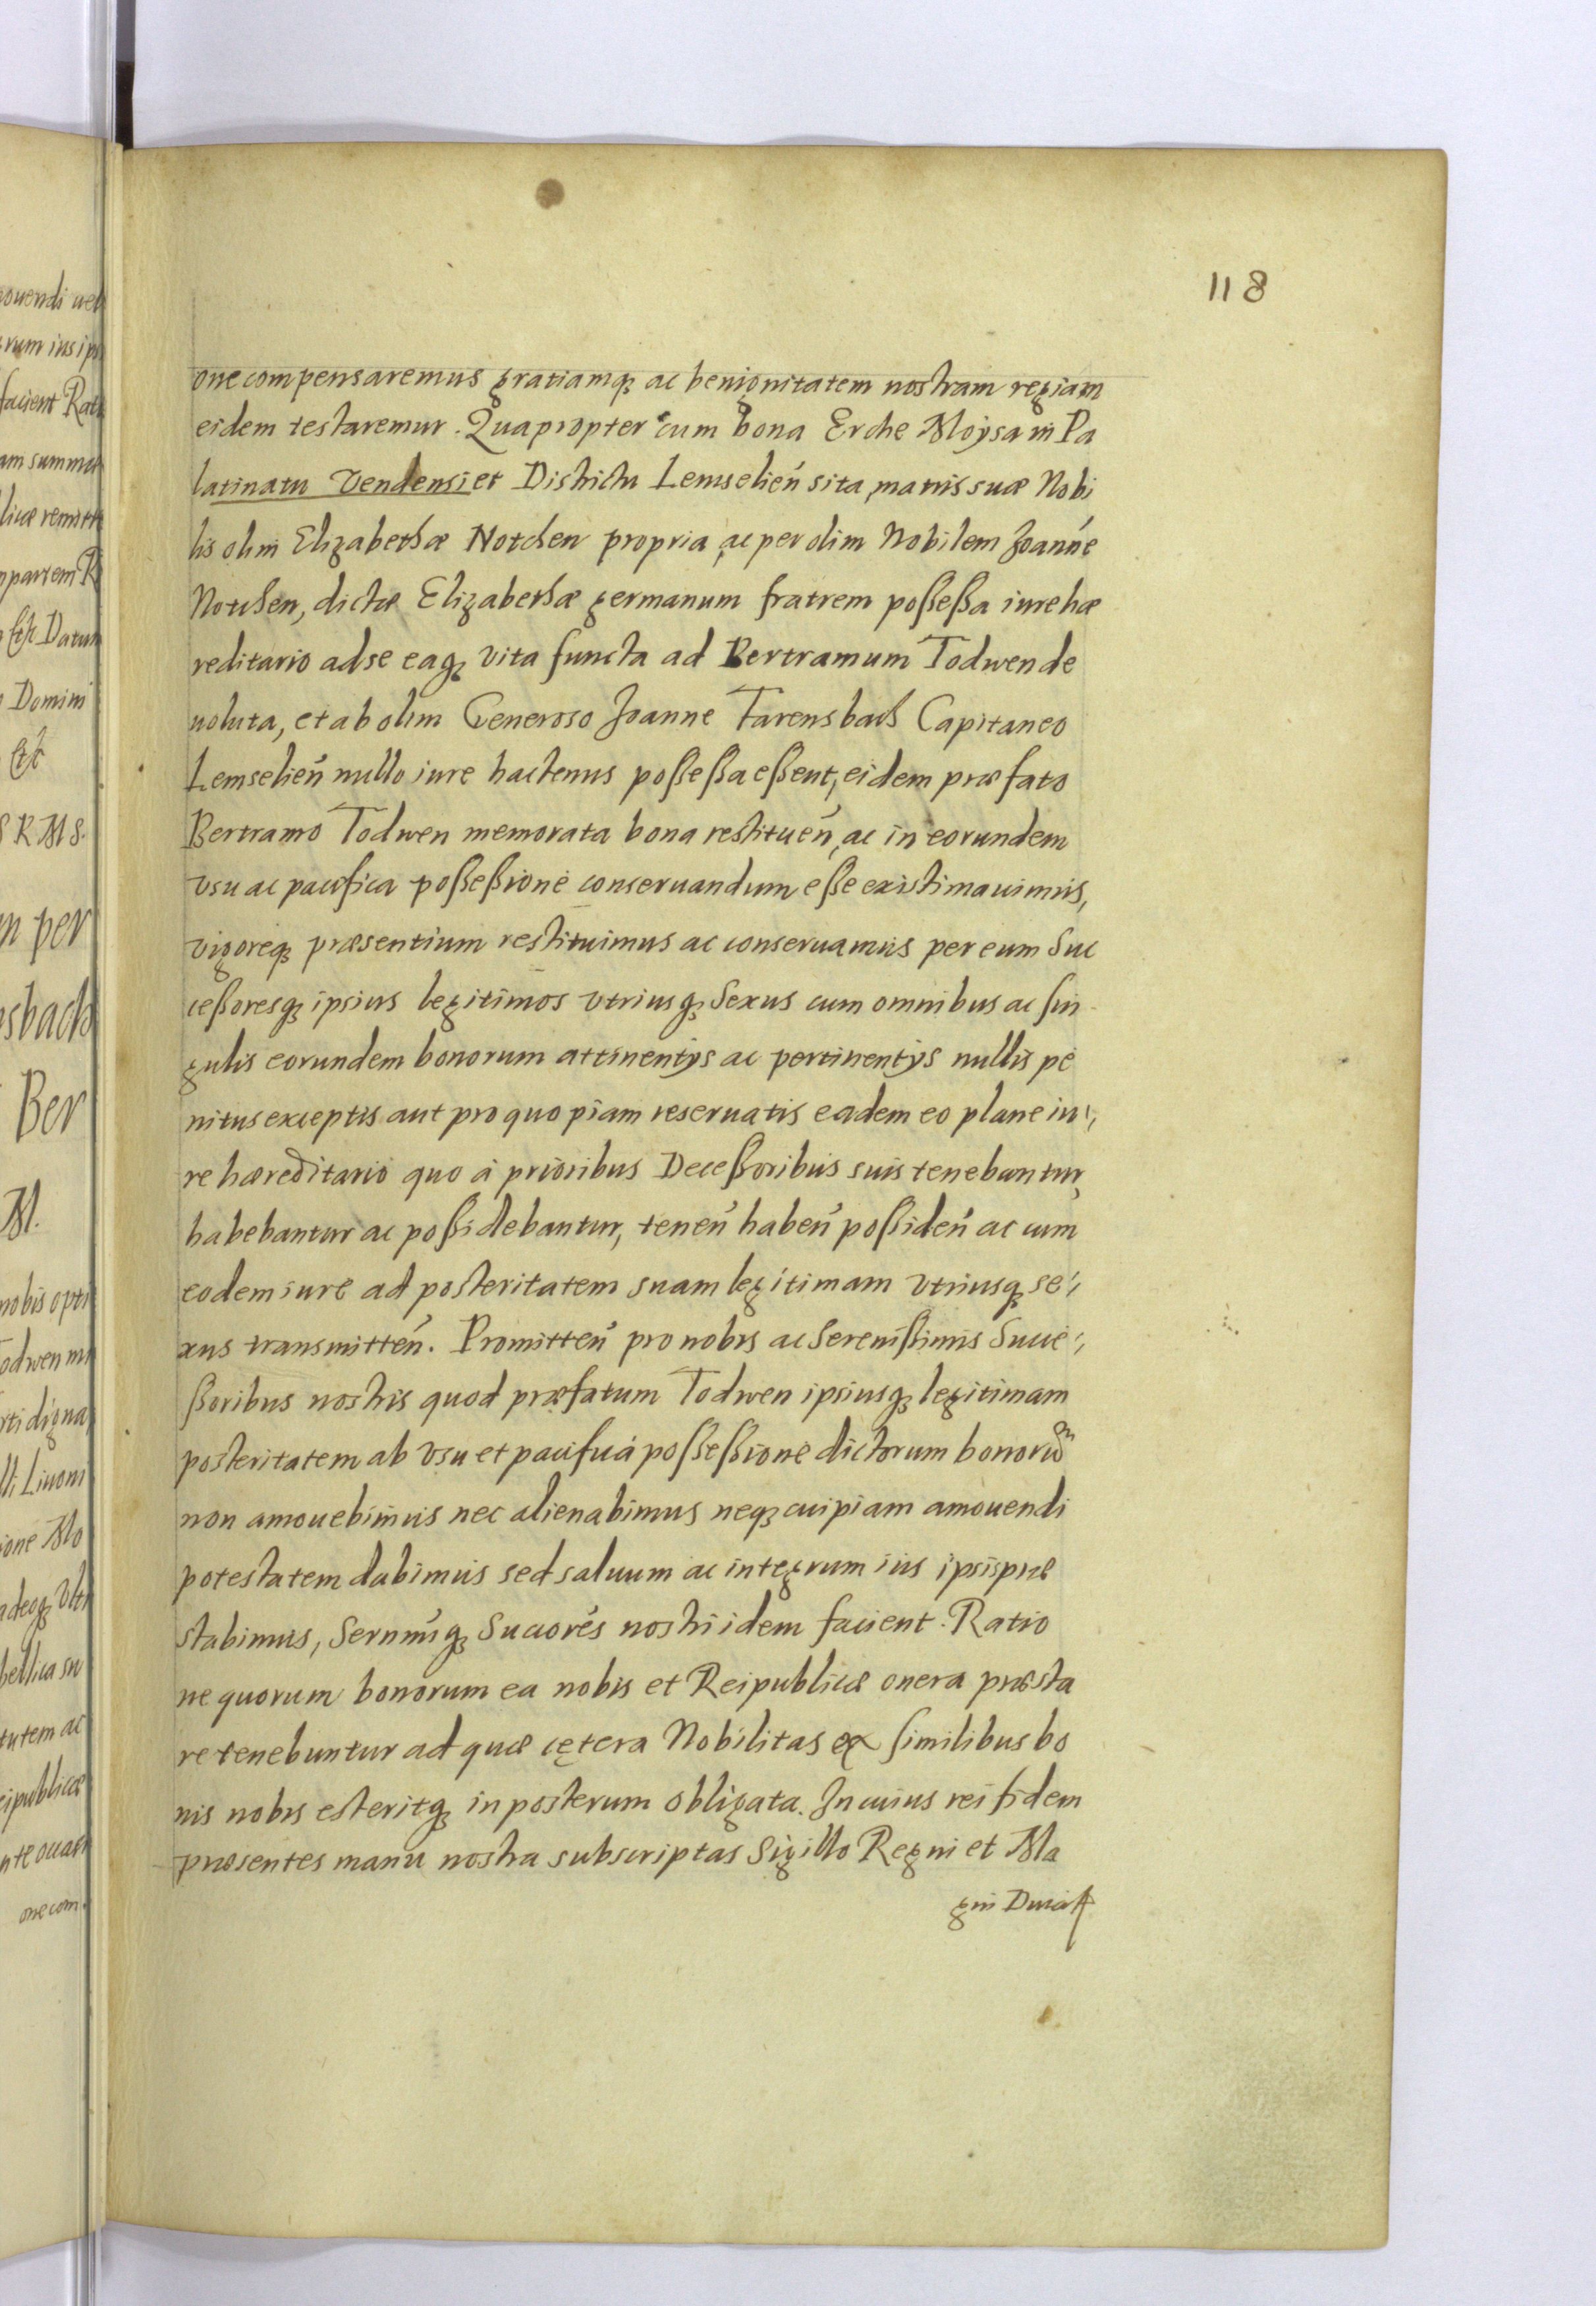 118
one compensaremus gratiamq; ac benignitatem nostram regiam
eidem testaremur. Quapropter cum bona Erche Moysa in Pa
latinatu Vendensi et Districtu Lemselień sita, matris suæ Nobi
lis olim Elizabethæ Notchen propria, ac per olim Nobilem Joanńe
Notchen, dictæ Elizabethæ germanum fratrem poßeßa iure hæ
reditario ad se eaq; vita functa ad Bertramum Todwen de
uoluta, et ab olim Generoso Joanne Farensbach Capitaneo
Lemselień nullo iure hactenus poßeßa eßent, eidem præfato
Bertramo Todwen memorata bona restitueń, ac in eorundem
vsu ac pacifica poßeßione conseruandum eße existimauimus,
vigoreq; præsentium restituimus ac conseruamus per eum Suc
ceßoresq; ipsius legitimos vtriusq; Sexus cum omnibus ac sin
gulis eorundem bonorum attinentijs ac pertinentijs nullis pe
nitus exceptis aut pro quopiam reseruatis eadem eo plane iu,
re hæreditario quo à prioribus Deceßoribus suis tenebantur,
habebantur ac poßidebantur, teneń habeń poßideń ac cum
eodem iure ad posteritatem suam legitimam vtriusq; se,
xus transmitteń. Promitteń pro nobis ac Sereniſsimis Succe,
ßoribus nostris quod præfatum Todwen ipsiusq; legitimam
posteritatem ab vsu et pacifica poßeßione dictorum bonorum
non amouebimus nec alienabimus neq; cuipiam amouendi
potestatem dabimus sed saluum ac integrum ius ipsis præ
stabimus, Sernmiq; Succorés nostri idem facient. Ratio
ne quorum bonorum ea nobis et Reipublicæ onera præsta
re tenebuntur ad quæ cętera Nobilitas ex similibus bo
nis nobis est eritq; in posterum obligata. In cuius rei fidem
præsentes manu nostra subscriptas Sigillo Regni et Ma
gni Ducat